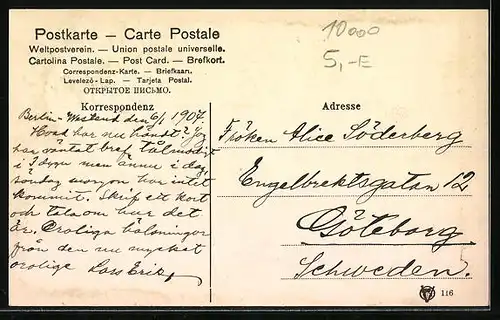 Postkarte – Carte Postale
Weltpostverein. — Union postale universelle.
Cartolina Postale. — Post Card. — Brefkort.
Correspondenz-Karte. — Briefkaart.
Levelező-Lap. — Tarjeta Postal.
ОТКРЫТОЕ ПИСЬМО.
10000
5,-E
Korrespondenz
Adresse
Berlin-Westend den 6/1 1907.
Hvad har nu händt? Jag
har väntat bref tålmodigt
i 3 dgr men ännu i dag
söndag morgon har intet
kommit. Skrif ett kort
och tala om hur det
är. Oroliga hälsningar
från den nu mycket
orolige Lars Erik
Fröken Alice Söderberg
Engelbrektsgatan 12
Göteborg
Schweden.
116